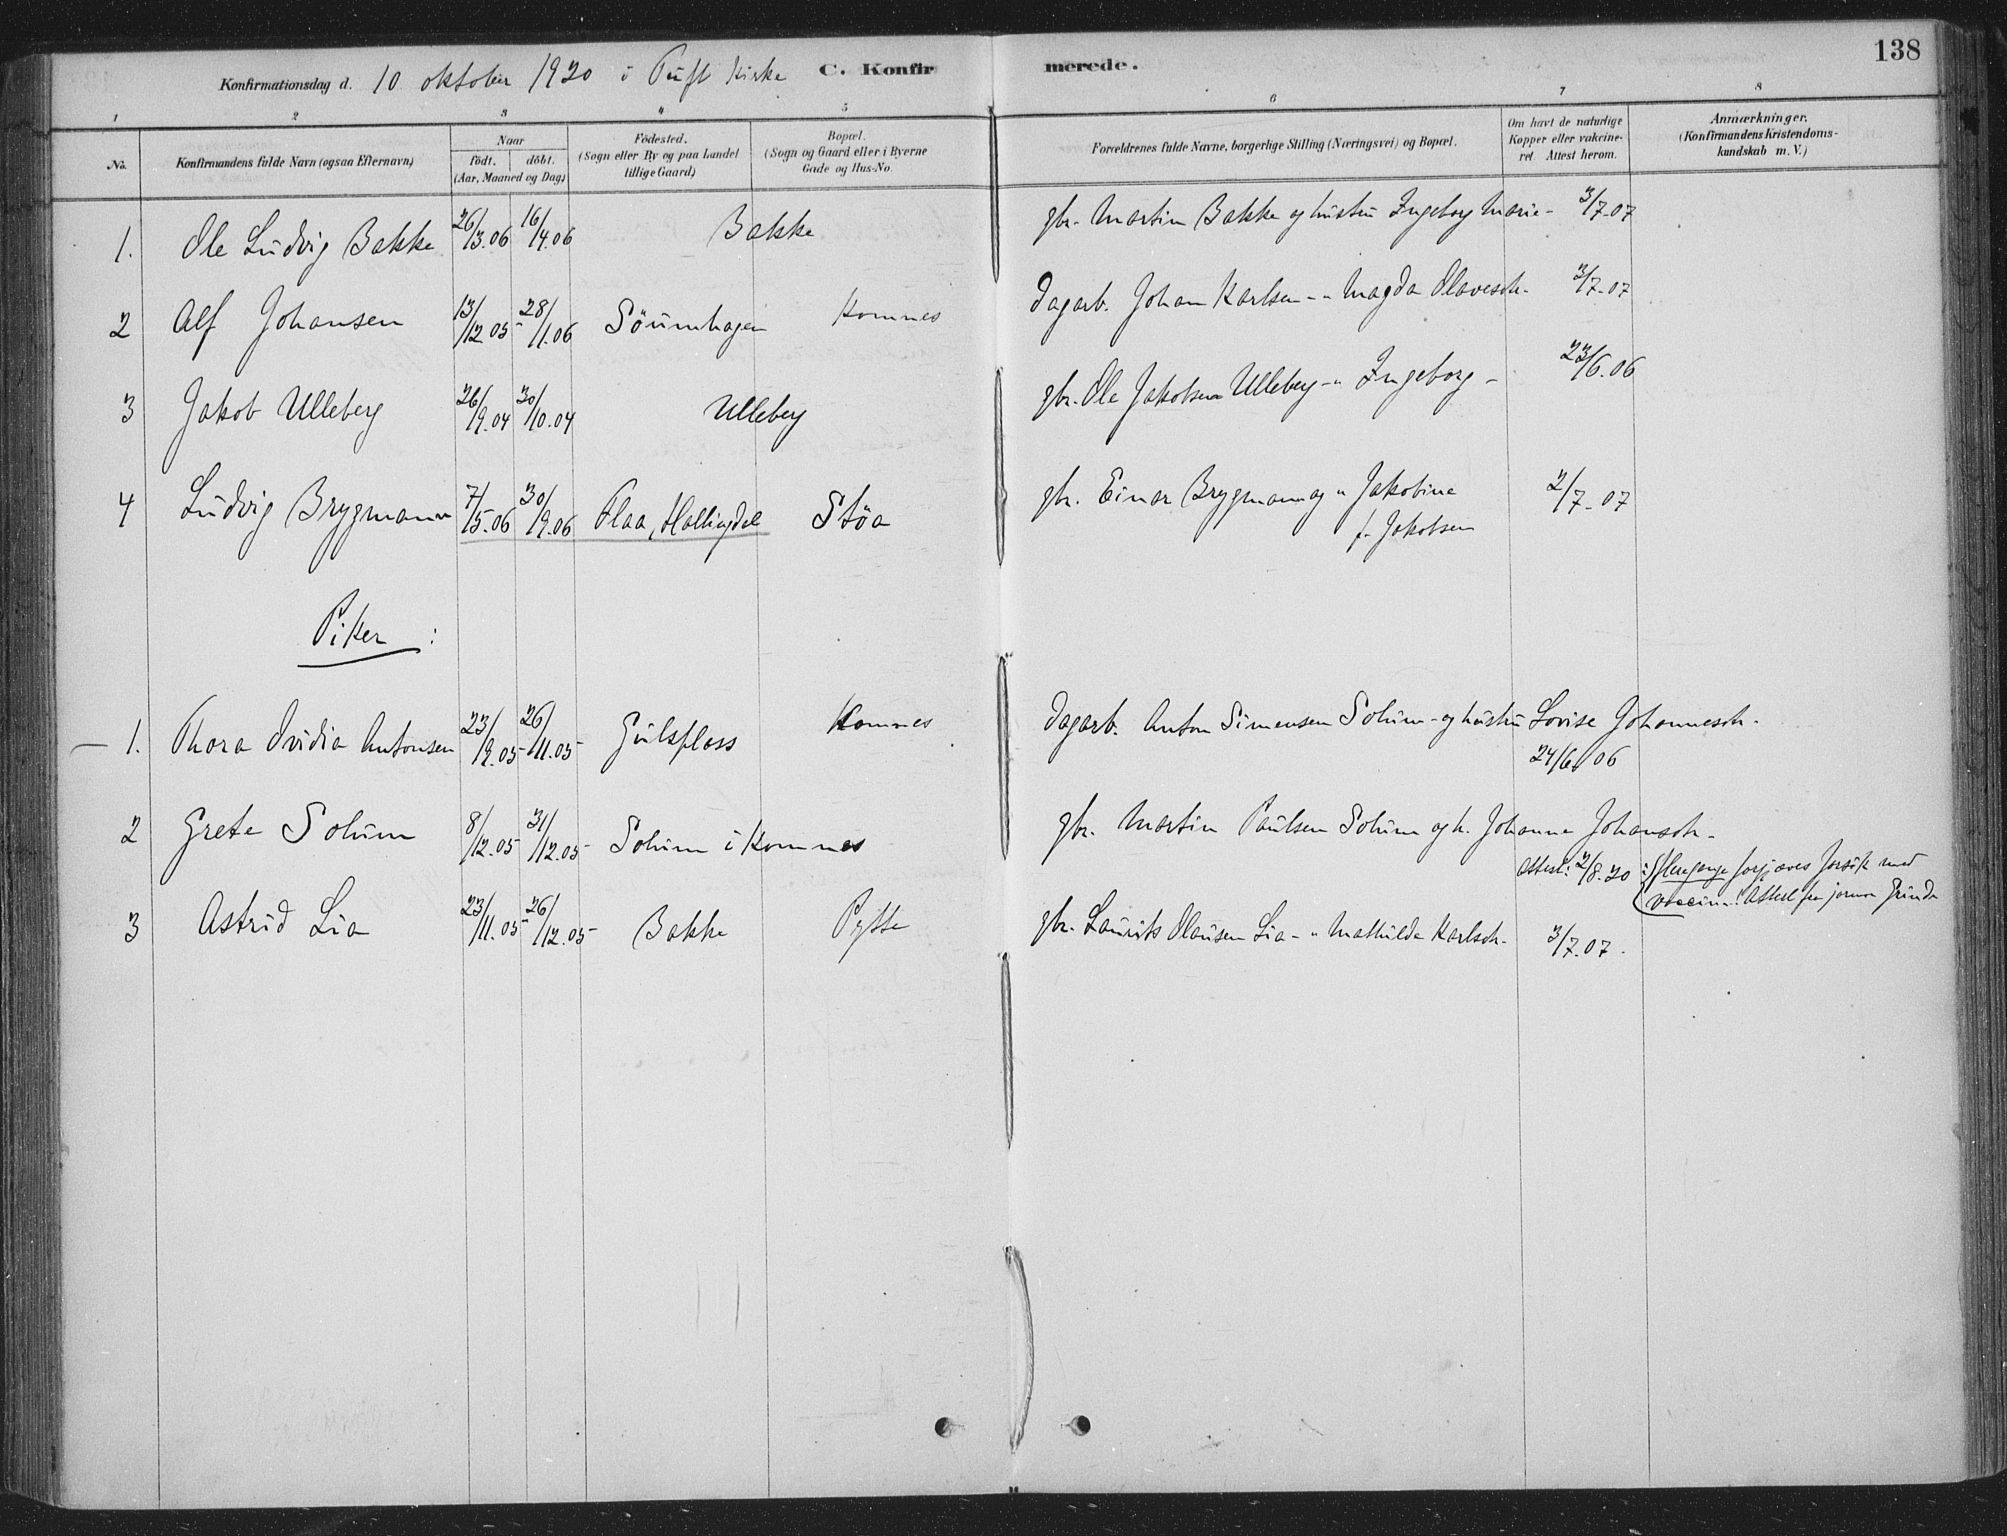 138
Konfirmationsdag d. 10 oktober 1920 i Tuft Kirke C. Konfirmerede.
1 2 3 4 5 6 7 8
No. Konfirmandens fulde Navn (ogsaa Efternavn) Naar födt. döbt. (Aar, Maaned og Dag) Födested. (Sogn eller By og paa Landet tillige Gaard) Bopæl. (Sogn og Gaard eller i Byerne Gade og Hus-No. Forældrenes fulde Navne, borgerlige Stilling (Næringsvei) og Bopæl. Om havt de naturlige Kopper eller vakcineret. Attest herom. Anmærkninger. (Konfirmandens Kristendomskundskab m. V.)
1. Ole Ludvig Bakke 26/3.06 16/4.06 Bakke gbr. Martin Bakke og hustru Ingeborg Marie - 3/7.07
2 Alf Johansen 13/12.05 28/1.06 Sörumhagen Komnes Dagarb. Johan Karlsen - " Magda Olavesdt. 3/7.07
3 Jakob Ulleberg 26/9.04 30/10.04 Ulleberg gbr. Ole Jakobsen Ulleberg - " Ingeborg - 23/6.06
4 Ludvig Brygmann 7/5.06 30/9.06 Flaa, Hallingdal Stöa gbr. Einar Brygmann og " Jakobine 2/7.07
f. Jakobsen
Piker :
1. Thora Ovidia Antonsen 23/9.05 26/11.05 Gulsplass Komnes Dagarb. Anton Simensen Solum - og hustru Lovise Johannesdt.
24/6.06
2 Grete Solum 8/12.05 31/12.05 Solum i Komnes gbr. Martin Paulsen Solum og h. Johanne Johansdt.
Attest: 2/8.20 : flere gange forgjæves forsök med
vaccine. Attest fra jormor
3 Astrid Lia 23/11.05 26/12.05 Bakke Pytte gbr. Laurits Olausen Lia - " Mathilde Karlsdt. 3/7.07.